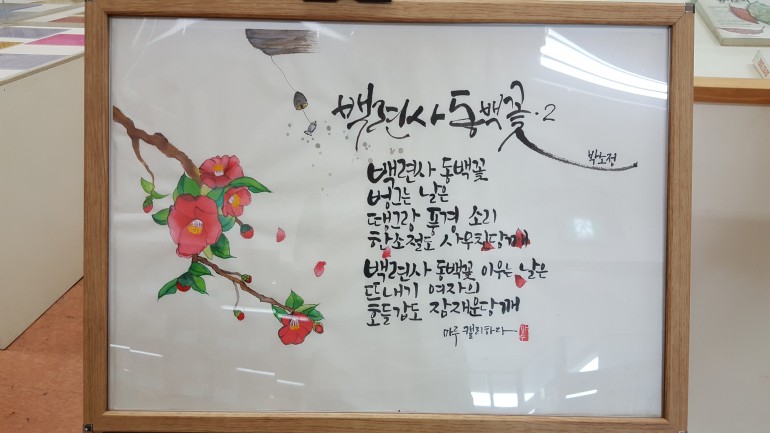 백련사 동백꽃·2
박노정
백련사 동백꽃
벙그는 날은
땡그랑 풍경 소리
한소절도 사무친당께
백련사 동백꽃 이우는 날은
뜨내기 여자의
호들갑도 잠재운당께
마루 캘리하다